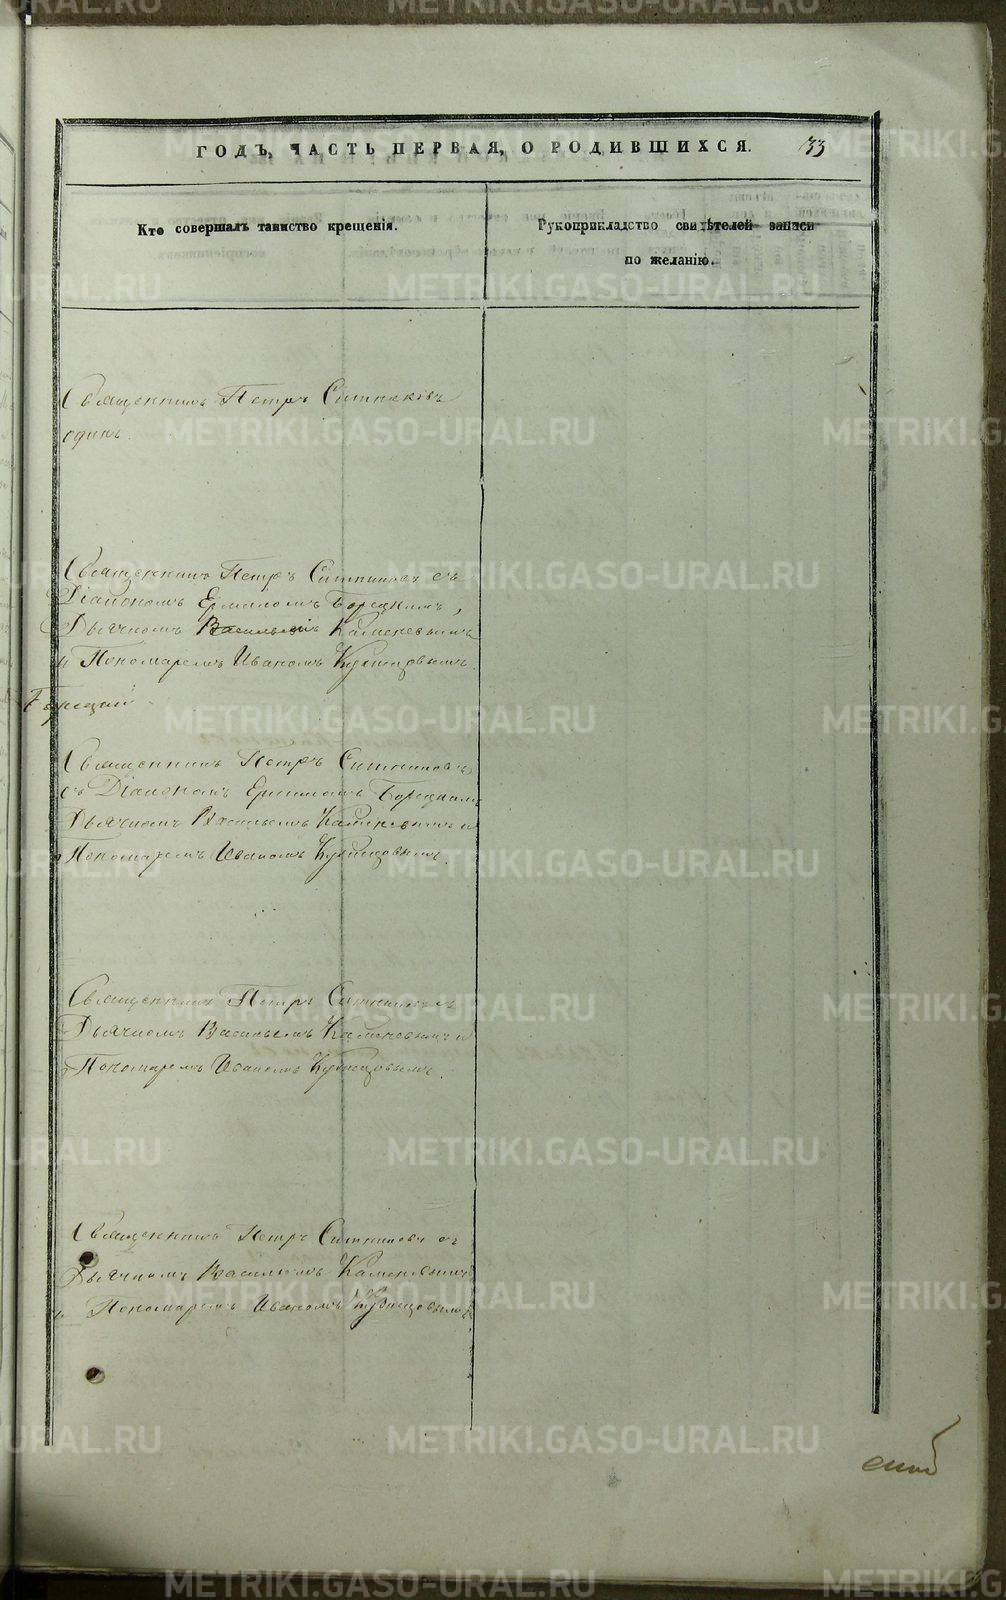 ГОДЪ, ЧАСТЬ ПЕРВАЯ, О РОДИВШИХСЯ. 33
Кто совершалъ таинство крещенія.
Рукоприкладство свидѣтелей записи
по желанію.
Священникъ Петръ Ситниковъ
одинъ.
Священникъ Петръ Ситниковъ съ
Діакономъ Ермиломъ Борецкимъ,
Дьячкомъ Васильемъ Каменевымъ
и Пономаремъ Иваномъ Кузнецовымъ.
Священникъ Петръ Ситниковъ
съ Діакономъ Ермиломъ Борецкимъ
Дьячкомъ Васильемъ Каменевымъ и
Пономаремъ Иваномъ Кузнецовымъ.
Священникъ Петръ Ситниковъ съ
Дьячкомъ Васильемъ Каменевымъ и
Пономаремъ Иваномъ Кузнецовымъ.
Священникъ Петръ Ситниковъ съ
Дьячкомъ Васильемъ Каменевымъ
и Пономаремъ Иваномъ Кузнецовымъ.
METRIKI.GASO-URAL.RU